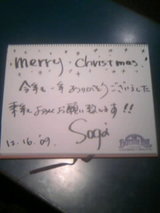 merry christmas!
今年も一年ありがとうございました
来年もよろしくお願い致します!!
12.16.'09.